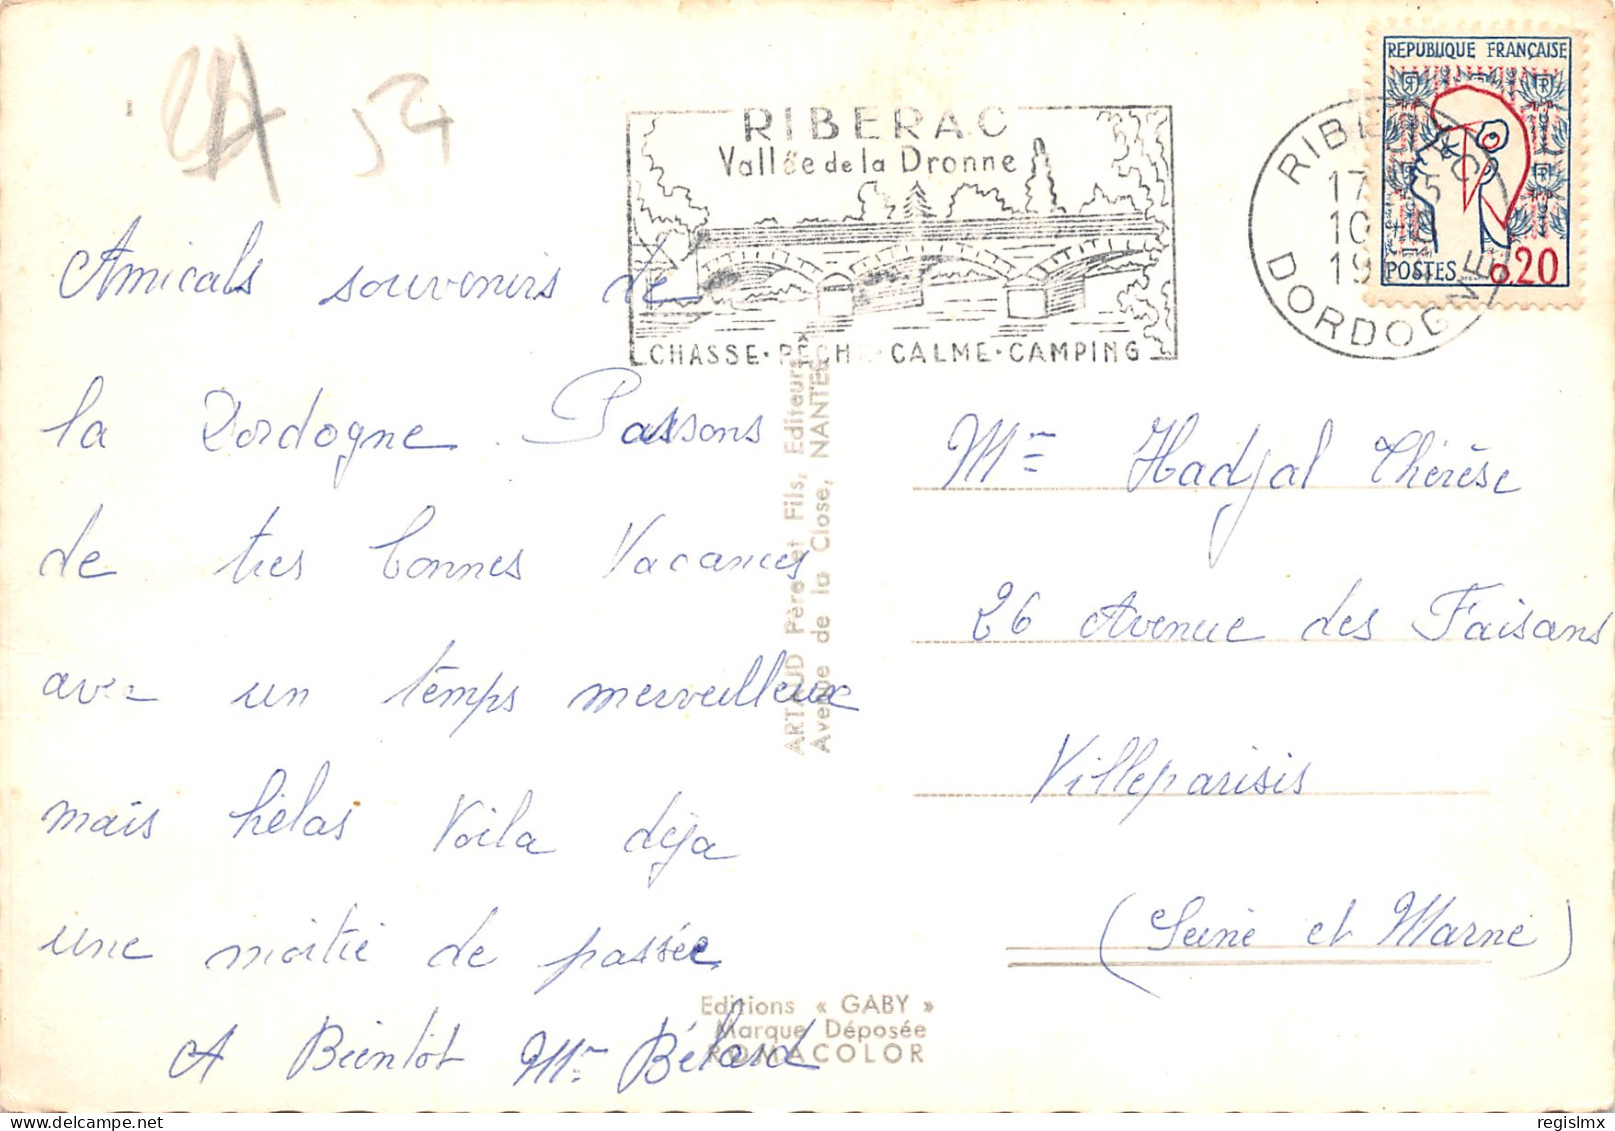 54
RIBERAC
Vallée de la Dronne
CHASSE · PÊCHE · CALME · CAMPING
RIBERAC
17
10
19
DORDOGNE
REPUBLIQUE FRANÇAISE
POSTES 0,20
Amicals souvenirs de
la Dordogne. Passons
de tres bonnes Vacances
avec un temps merveilleux
mais hélas Voila déja
une moitié de passée
A Bientôt Mme
ARTAUD Père et Fils, Editeurs
Avenue de la Close, NANTES
Editions « GABY »
Marque Déposée
ROMACOLOR
Mme Hadjal Thérèse
26 Avenue des Faisans
Villeparisis
(Seine et Marne)
Delcampe.net
regislmx